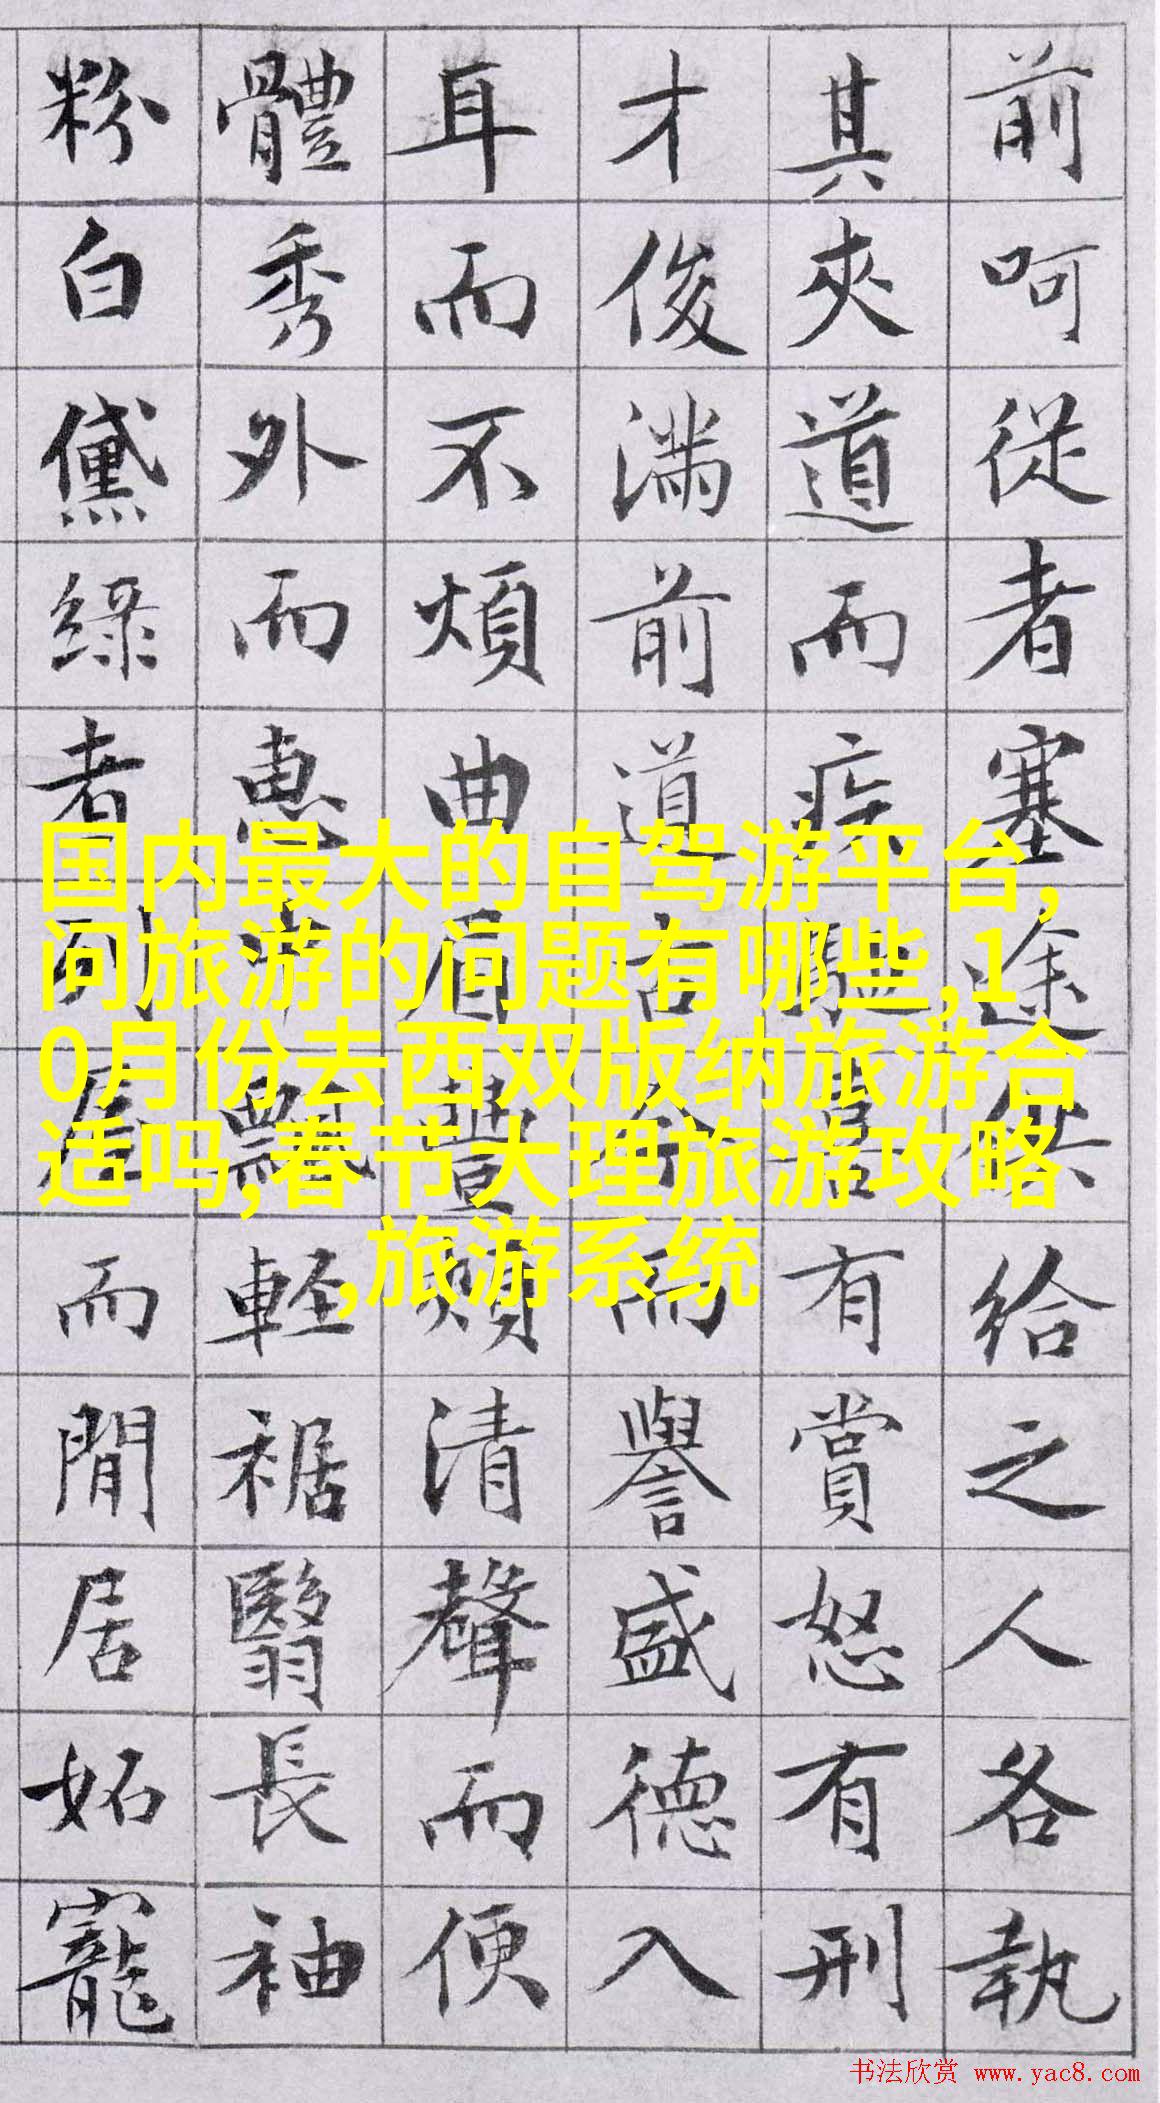 前呵從者塞途供給之人各執
其夾道而疾 喜有賞怒有刑
才俊滿前道古今而譽盛德入
耳而不煩曲眉豐頰清聲而便
體秀外而惠中飄輕裾翳長袖
粉白黛綠者列屋而閒居妬寵
国内最大的自驾游平台,
问旅游的问题有哪些,1
0月份去西双版纳旅游合
适吗,春节大理旅游攻略
,旅游系统
书法欣赏 www.yac8.com